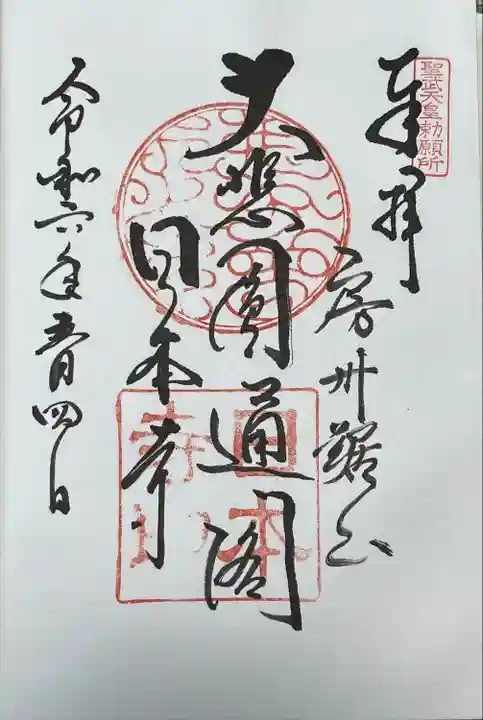 聖武天皇勅願所
奉拝
房州鋸山
大悲圓通閣
日本寺
令和六年五月四日
日本
寺